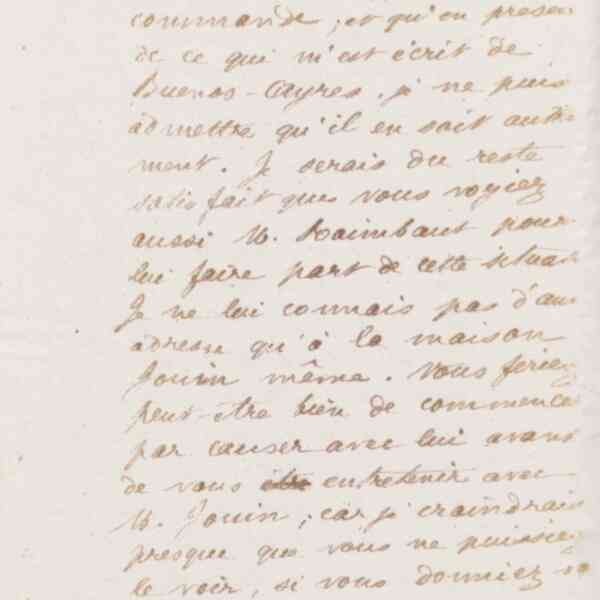 commande ; et qu'en presen
de ce qui m'est écrit de
Buenos-Ayres, je ne puis
admettre qu'il en soit autre
ment. Je serais du reste
satisfait que vous voyiez
aussi M. Raimbaut pour
lui faire part de cette situa
Je ne lui connais pas d'au
adresse qu'à la maison
Jouin même. Vous feriez
peut-être bien de commence
par causer avec lui avant
de vous entretenir avec
M. Jouin ; car je craindrais
presque que vous ne puissiez
le voir, si vous donniez